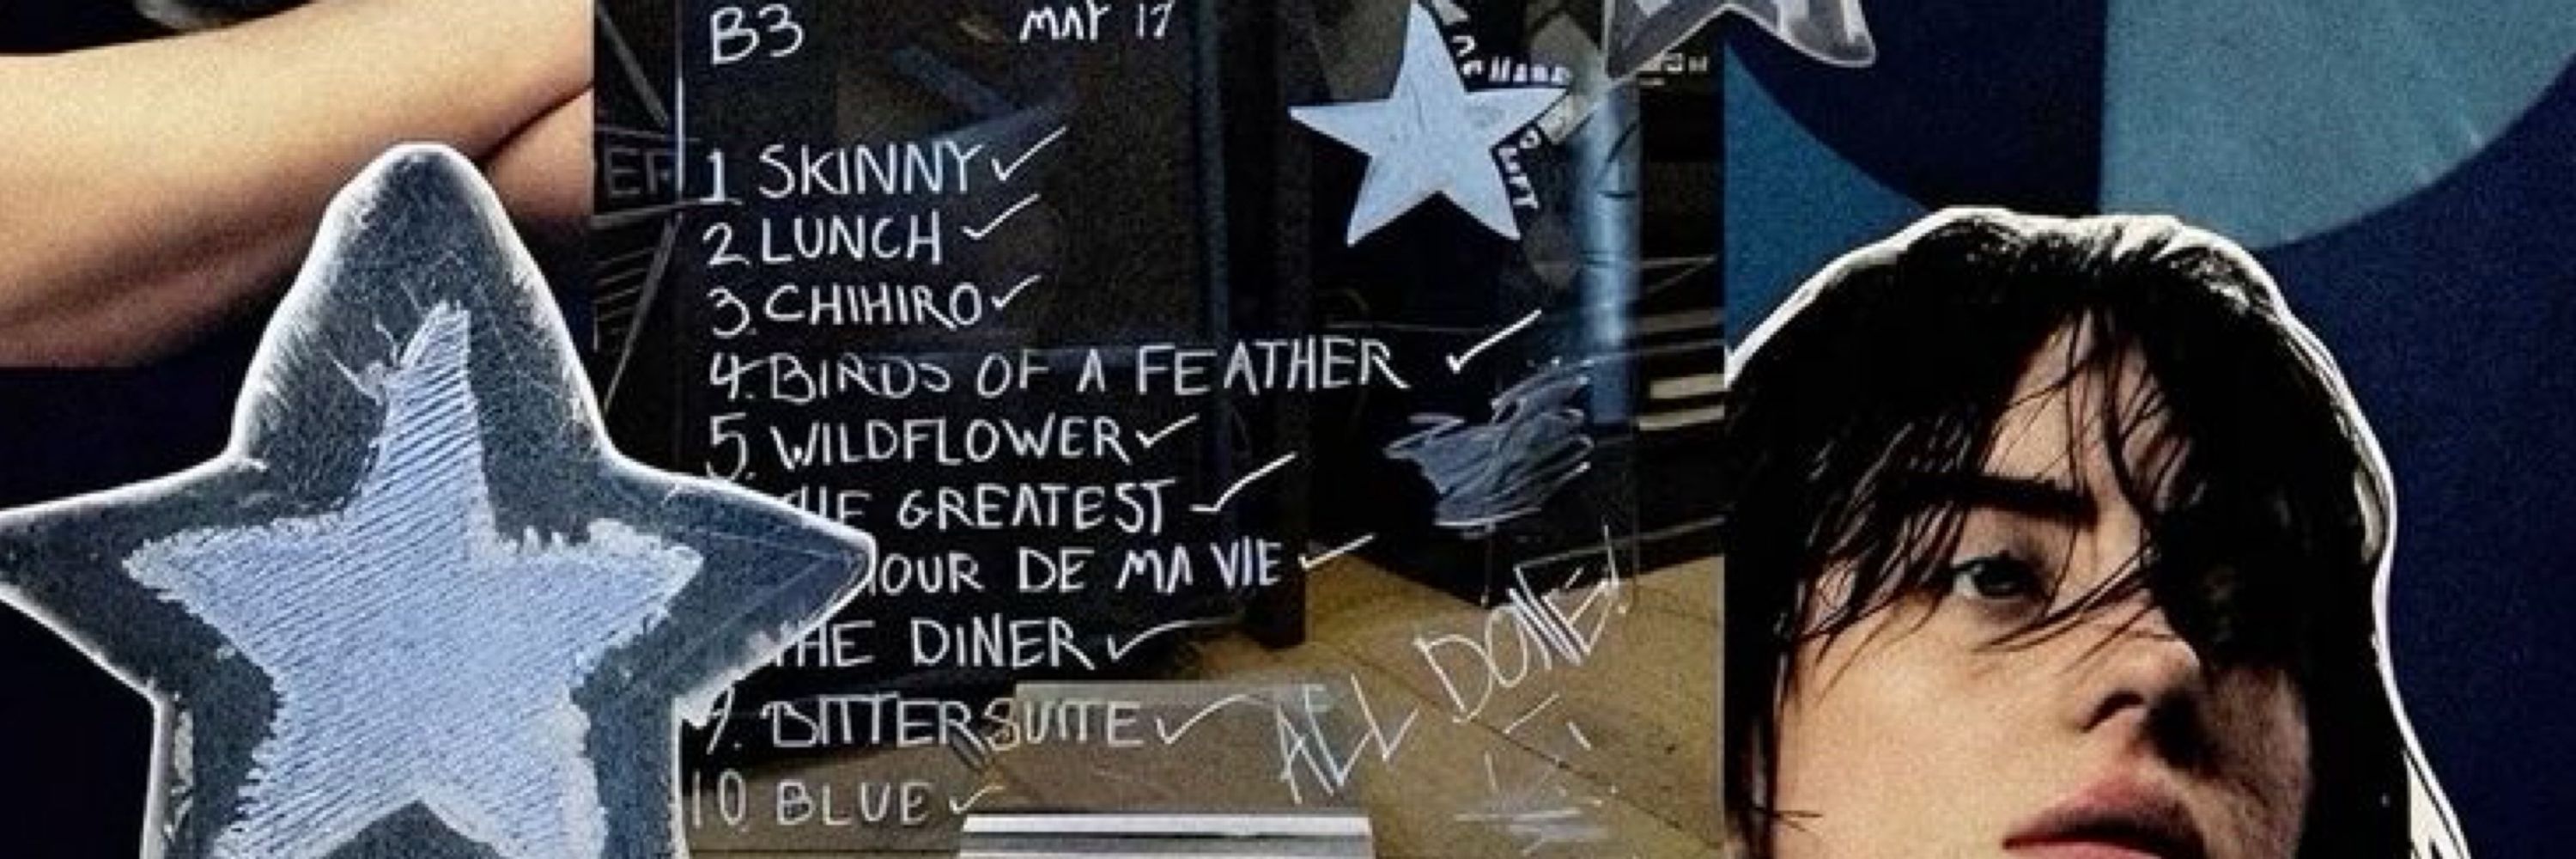 B3
MAY 17
1 SKINNY
2 LUNCH
3. CHIHIRO
4. BIRDS OF A FEATHER
5. WILDFLOWER
GREATEST
DE MA VIE
DINER
9. BITTERSUITE
10 BLUE
ALL DONE!